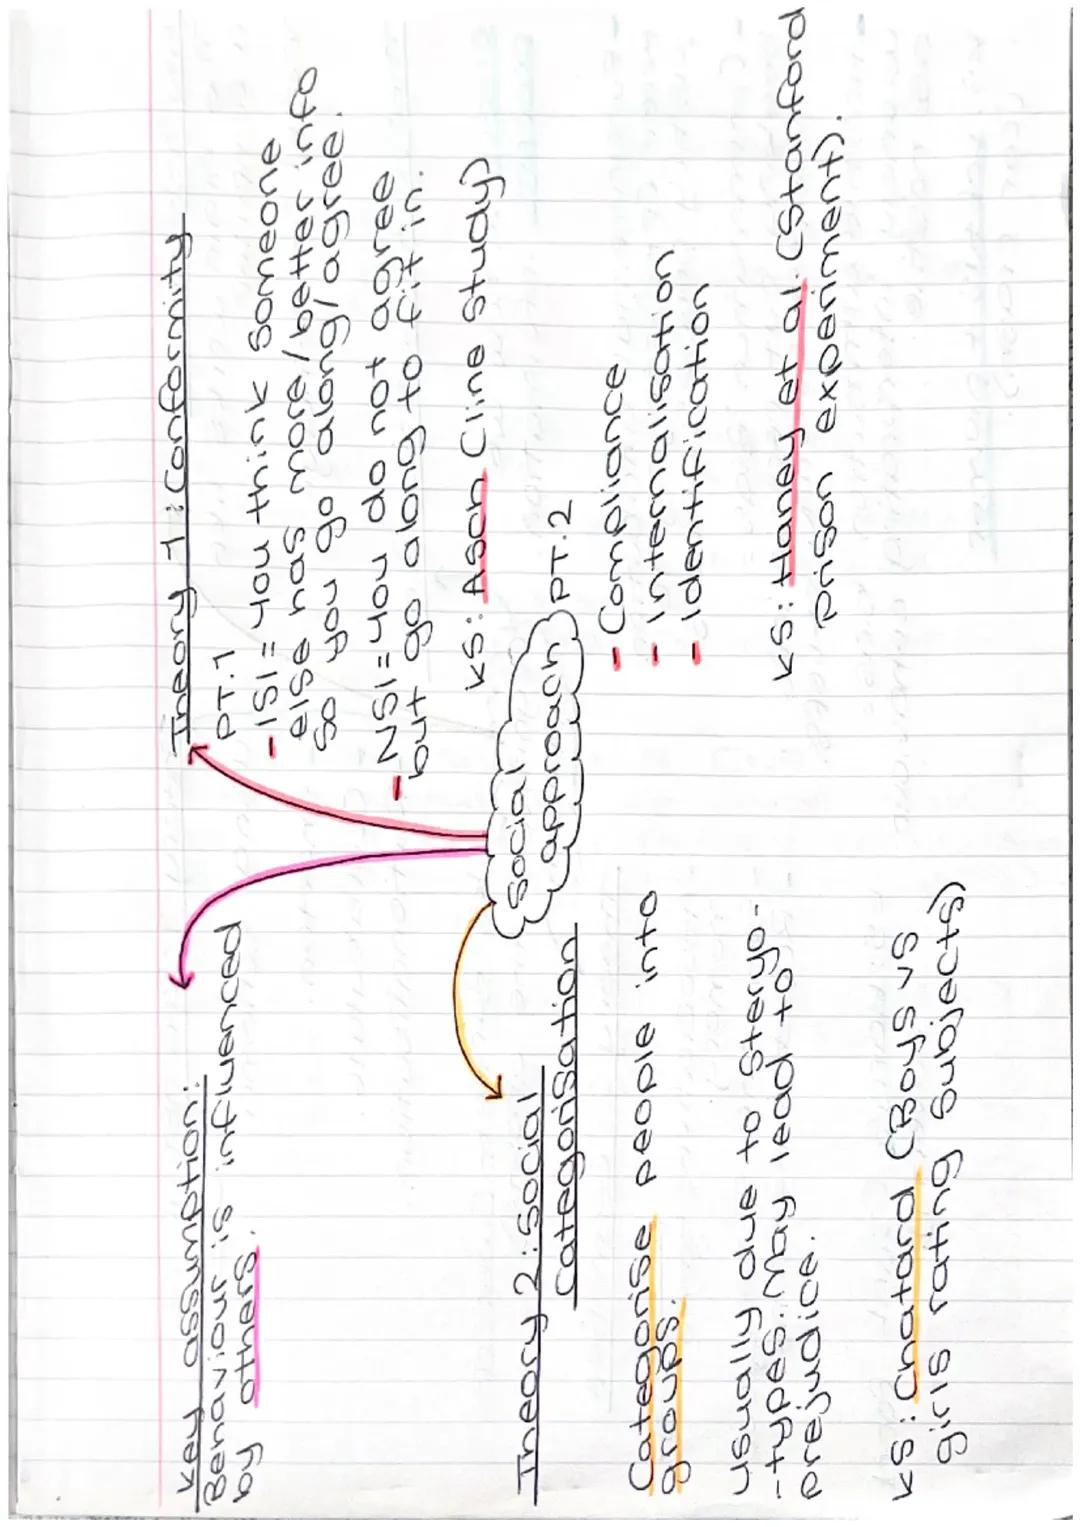 Key assumption:
Behaviour is influenced
by others.
Theory 1: Conformity
PT.1
- ISI = you think someone
else has more/better info
so you go along/agree.
- NSI = you do not agree
but go along to fit in.
KS: Asch (line study)
Social
approach
PT.2
- Compliance
- Internalisation
- Identification
KS: Haney et al. (Stanford
prison experiment).
Theory 2: Social
Categorisation
Categorise people into
groups.
usually due to steryo-
-types. May lead to
prejudice.
KS: Chatard (Boys vs
girls rating subjects)